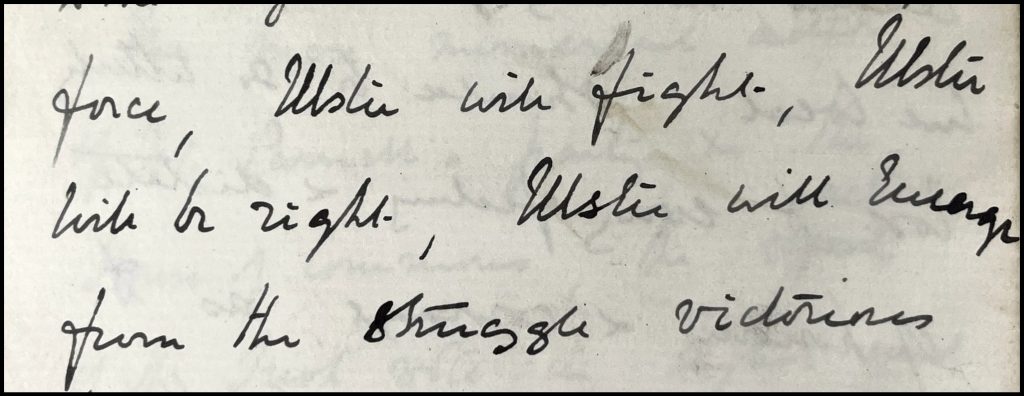 force, Ulster will fight, Ulster
will be right, Ulster will Emerge
from the struggle victorious